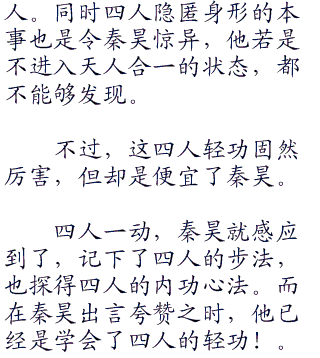 人。同时四人隐匿身形的本
事也是令秦昊惊异，他若是
不进入天人合一的状态，都
不能够发现。
不过，这四人轻功固然
厉害，但却是便宜了秦昊。
四人一动，秦昊就感应
到了，记下了四人的步法，
也探得四人的内功心法。而
在秦昊出言夸赞之时，他已
经是学会了四人的轻功！。